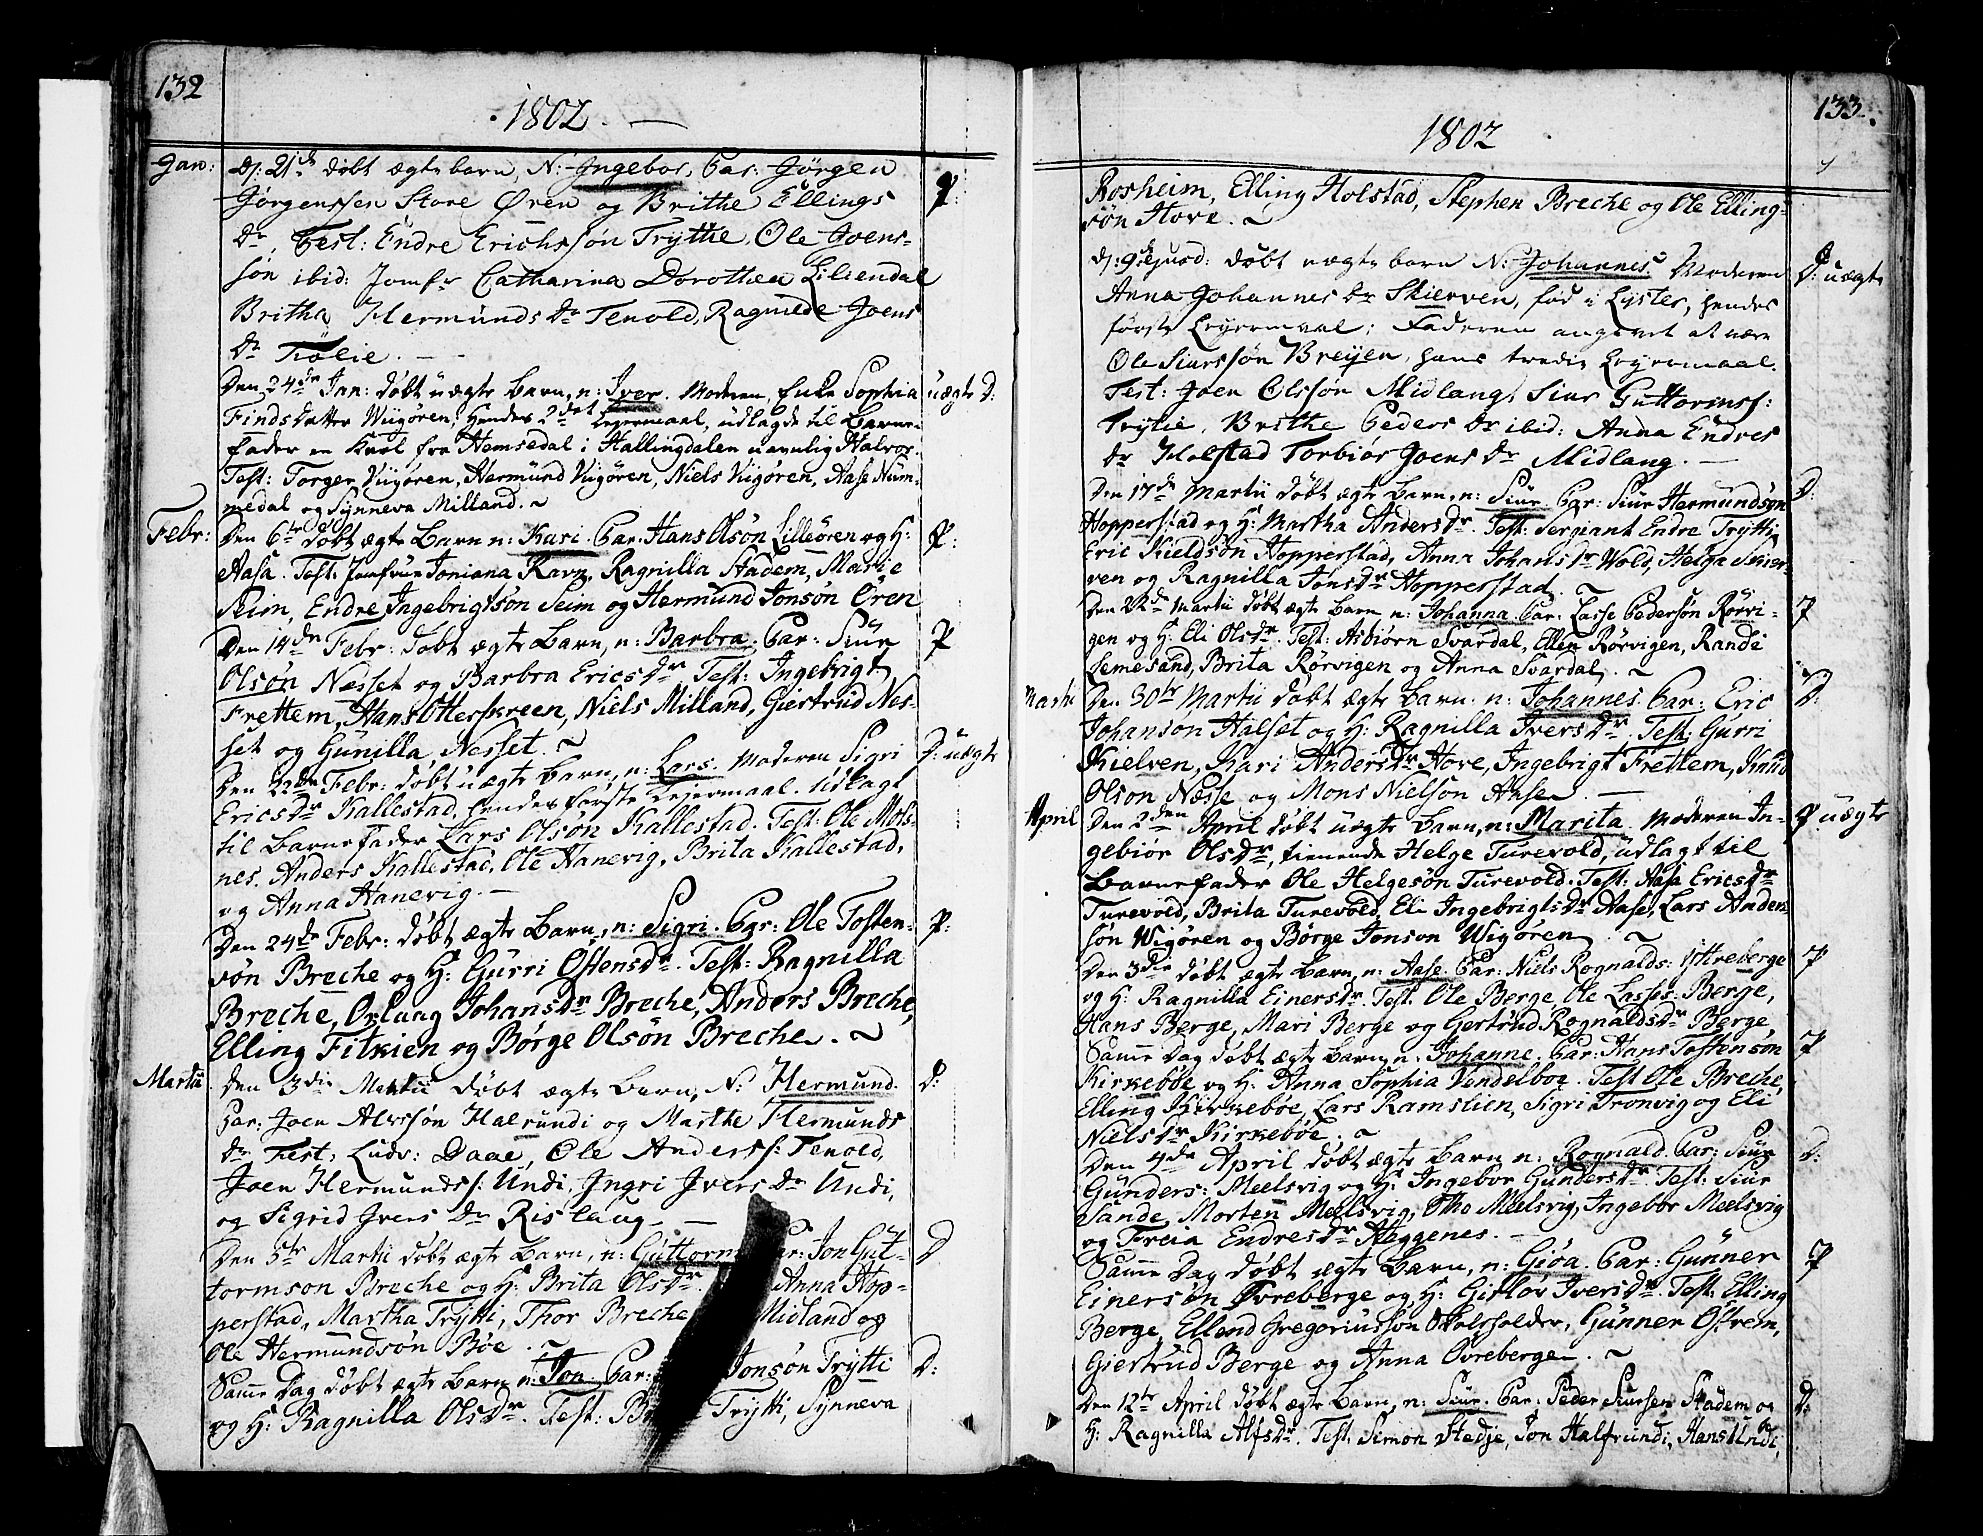 132
1802.
Jan: D: 21de døbt ægte barn, N: Ingebor, Par: Jørgen
Jørgenssen Store Øren og Brithe Ellings
Dr. Test: Endre Erichssøn Trytte, Ole Joens-
søn ibid: Jomfr Catharina Dorothea Liliendal
Britha Hermunds Dr Tenold, Ragnilde Joens
Dr
Den 24de Jan: døbt uægte Barn, n: Iver. Moderen, Enke Sophia uægte D:
Findsdatter Wiigøren, Hendes 2det Lejermaal, udlagde til Barne-
fader en Karl fra Hemsedal i Hallingdalen navnlig Halvor.
Test: Torger Viigøren, Hermund Viigøren, Niels Viigøren, Aase Num-
medal og Synneva Milland. ~
Febr: Den 6te døbt ægte Barn n: Kari. Par: Hans Olsøn Lilleøren og H: P:
Aasa. Test: Jomfrue Joniana Ravn, Ragnilla Stadem, Marie
Seim, Endre Ingebrigtsøn Seim og Hermund Jonsøn Øren
Den 14de Febr: døbt ægte Barn, n: Barbra, Par: Siur P
Olsøn Nesset og Barbra Ericsdr. Test: Ingebrigt
Frettem, Hans Otterskreen, Niels Milland, Giertrud Nes-
set og Gunilla Nesset. ~
Den 22de Febr: døbt uægte Barn, n: Lars. Moderen Sigri D: uægte
Ericsdr Kallestad, hendes første Lejermaal. Udlagt
til Barnefader Lars Olsøn Kallestad. Test: Ole Mols-
nes, Anders Kallestad, Ole Hanevig, Brita Kallestad,
og Anna Hanevig. -
Den 24de Febr: døbt ægte Barn, n: Sigri. Par: Ole Tosten- P:
søn Breche og H: Gurri Ostensdr. Test: Ragnilla
Breche, Orlaug Johansdr Breche, Anders Breche,
Elling Fitkien og Børge Olsøn Breche. ~
Martii Den 3die Martii døbt ægte Barn, N: Hermund. D:
Par: Joen Alvssøn Halrundi og Marthe Hermunds
Dr Test: Ludv: Daae, Ole Anderss: Tenold,
Joen Hermunds: Undi, Ingri Ivers Dr Undi,
og Sigrid Ivers Dr Rislaug -
Den 5te Martii døbt ægte Barn, n: Guttorm Par: Jon Gut- D
tormson Breche og H: Brita Olsdr. Anna Hop-
perstad, Martha Trytti, Thor Breche Midland og
Ole Hermundsøn Bøe. ~
Samme Dag døbt ægte Barn n: Jon. Par: Jonsøn Trytti D:
og H: Ragnilla Olsdr. Test: Trytti, Synneva
133.
1802
Rosheim, Elling Holstad, Stephen Breche og Ole Elling-
søn Hove. ~
D: 9de ejusd: døbt uægte barn N: Johannes. Moderen D: uægte
Anna Johannes Dr Skierven, fød i Lyster, hendes
første Leyermaal; Faderen angivet at være
Ole Siurssøn Breyen, hans tredie Leyermaal.
Test: Joen Olssøn Midlang, Siur Guttormss:
Trytie, Brithe Peders Dr ibid: Anna Endres
Dr Holstad Torbiør Joens Dr Midlang. -
Den 17de Martii døbt ægte Barn, n: Siur. Par: Siur Hermundsøn D:
Hopperstad og H: Martha Andersdr. Test: Sergiant Endre Trytti,
Eric Kieldsøn Hopperstad, Anna Johansdr Wold, Helga Skier-
ven og Ragnilla Jonsdr Hopperstad. ~
Den 22de Martii døbt ægte Barn n: Johanna. Par: Lasse Pedersøn Rørvi- P
gen og H: Eli Olsdr. Test: Asbiørn Svardal, Ellen Rørvigen, Randi
Lemesand, Brita Rørvigen og Anna Svardal. ~
Martii Den 30te Martii døbt ægte Barn. n: Johannes. Par: Eric D:
Johanson Halset og H: Ragnilla Iversdr. Test: Gurri
Kielven, Kari Andersdr Hove, Ingebrigt Frettem, Knud
Olson Nesse og Mons Nielson Aase. -
April Den 2den April døbt uægte Barn, n: Marita. Moderen In- P uægte
gebiør Olsdr, tienende Helge Turevold, udlagt til
Barnefader Ole Helgesøn Turevold. Test: Aasa Ericsdr
Turevold, Brita Turevold, Eli Ingebrigtsdr Aase, Lars Anders-
søn Wigøren og Børge Jonson Wigøren. ~
Den 3die døbt ægte Barn, n: Aase. Par: Niels Rognalds: Yttreberge P
og H: Ragnilla Einersdr. Test: Ole Berge, Ole Lasses: Berge,
Hans Berge, Mari Berge og Gertrud Rognaldsdr Berge
Samme Dag døbt ægte Barn, n: Johanne. Par: Hans Tostensøn P
Kirkebøe og H: Anna Sophia Vendelboe. Test Ole Breche,
Elling Kirkebøe, Lars Ramslien, Sigri Tronvig og Eli
Nielsdr Kirkebøe. ~
Den 4de April døbt ægte Barn n: Rognald. Par: Siur D:
Gunders: Meelsvig og H: Ingebor Gundersdr. Test: Siur
Sande, Morten Meelsvig, Otho Meelsvig, Ingebor Meelsvig
og Freia Endresdr Haggenes. -
Samme Dag døbt ægte Barn, n: Giøa. Par: Gunner P
Einersøn Øvreberge og H: Girlov Iversdr. Test: Elling
Berge, Ellend Gregoriusson Skolholder, Gunner Østrem,
Giertrud Berge og Anna Øvreberge. ~
Den 12te April døbt ægte Barn, n: Siur. Par: Peder Siursen Stadem og D:
H: Ragnilla Alfsdr. Test: Simon Stedje, Jon Halfrundi, Hans Undi,